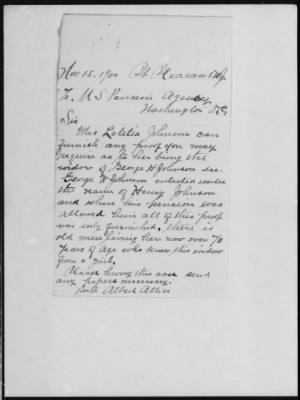 Nov 15. 1900 Pt. Pleasant N.J.
To, U S Pension Agency
Washington D.C.
Sir
Mrs. Letitia Johnson can
furnish any proof you may
require as to her being the
widow of George H Johnson dec.
George W Johnson enlisted under
the name of Henry Johnson
and when his pension was
allowed him all of this proof
was only furnished, there is
old men living her now over 70
years of age who knew this widow
from a girl.
Please hurry this case send
any papers necessary.
Albert Allen